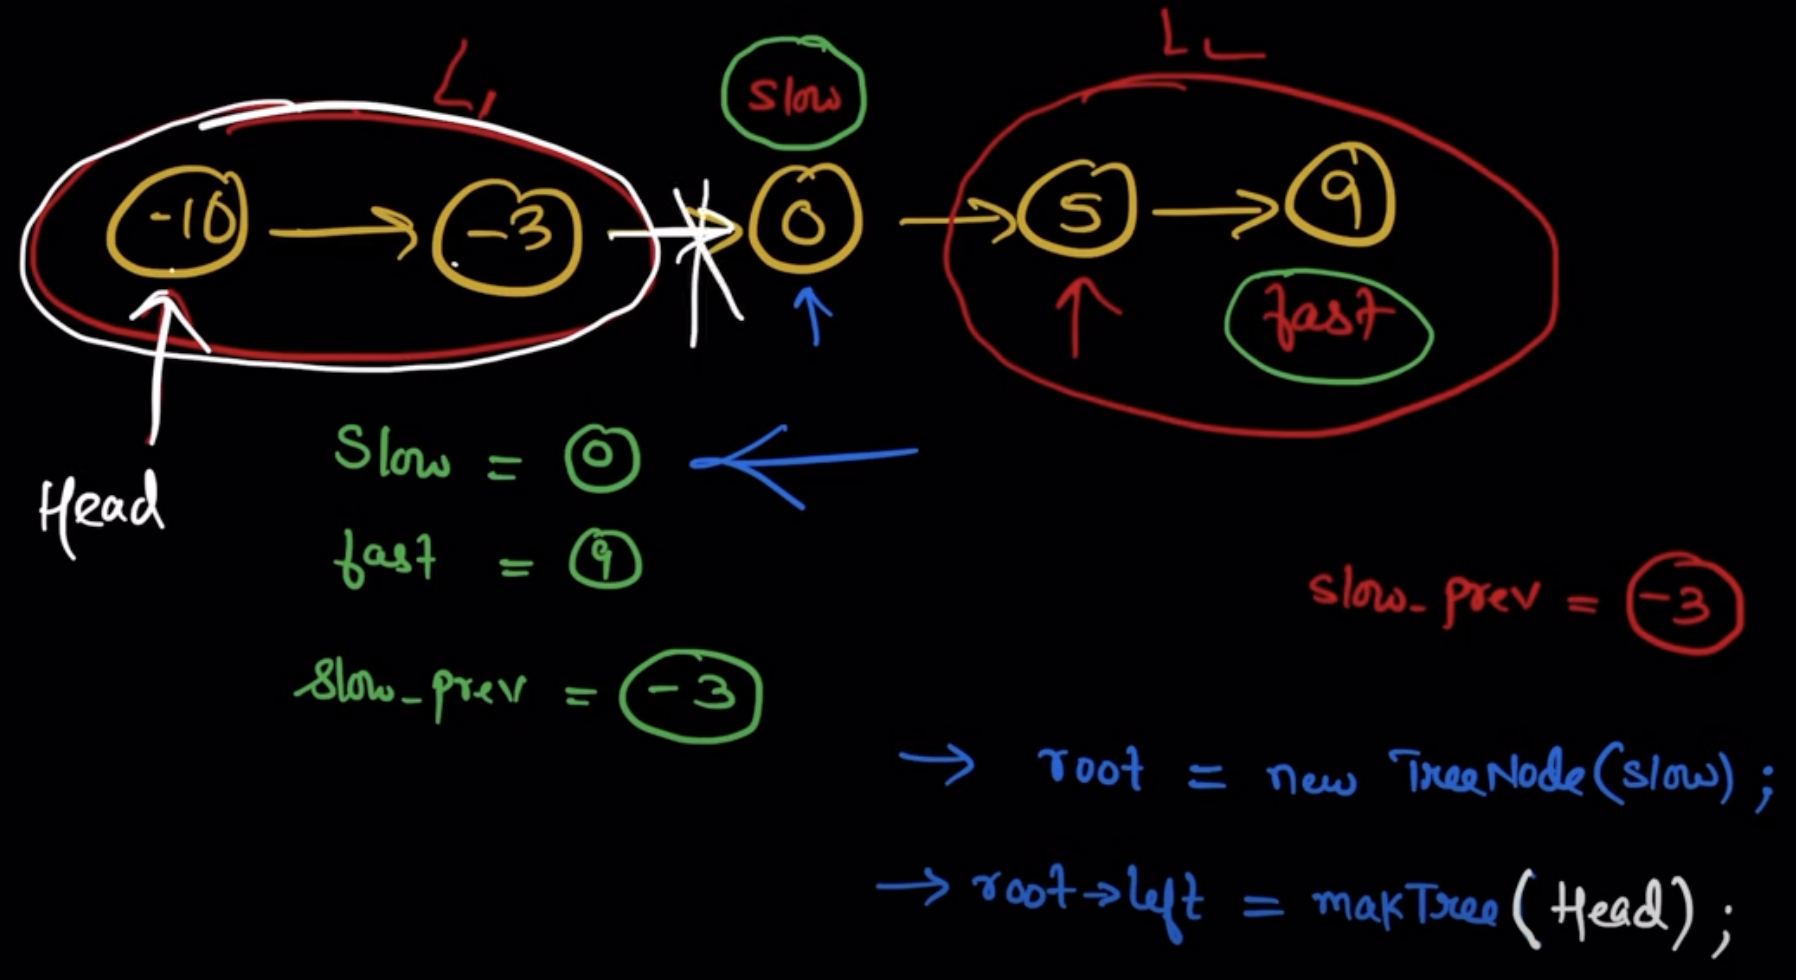 L1
L2
slow
-10 → -3 → 0 → 5 → 9
fast
Head
Slow = 0
fast = 9
slow_prev = -3
slow_prev = -3
→ root = new TreeNode(slow);
→ root→left = makTree(Head);